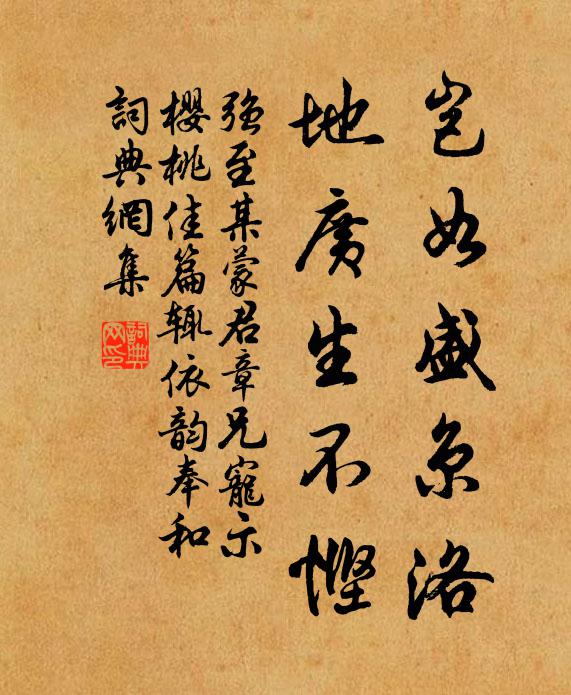 岂如盛京洛
地广生不悭
強至某蒙君章兄寵示
櫻桃佳篇辄依韵奉和
詞典網集
詞典
网印